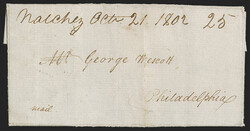 Natchez Octr 21. 1802 25
Mr George Wescott
Philadelphia
mail